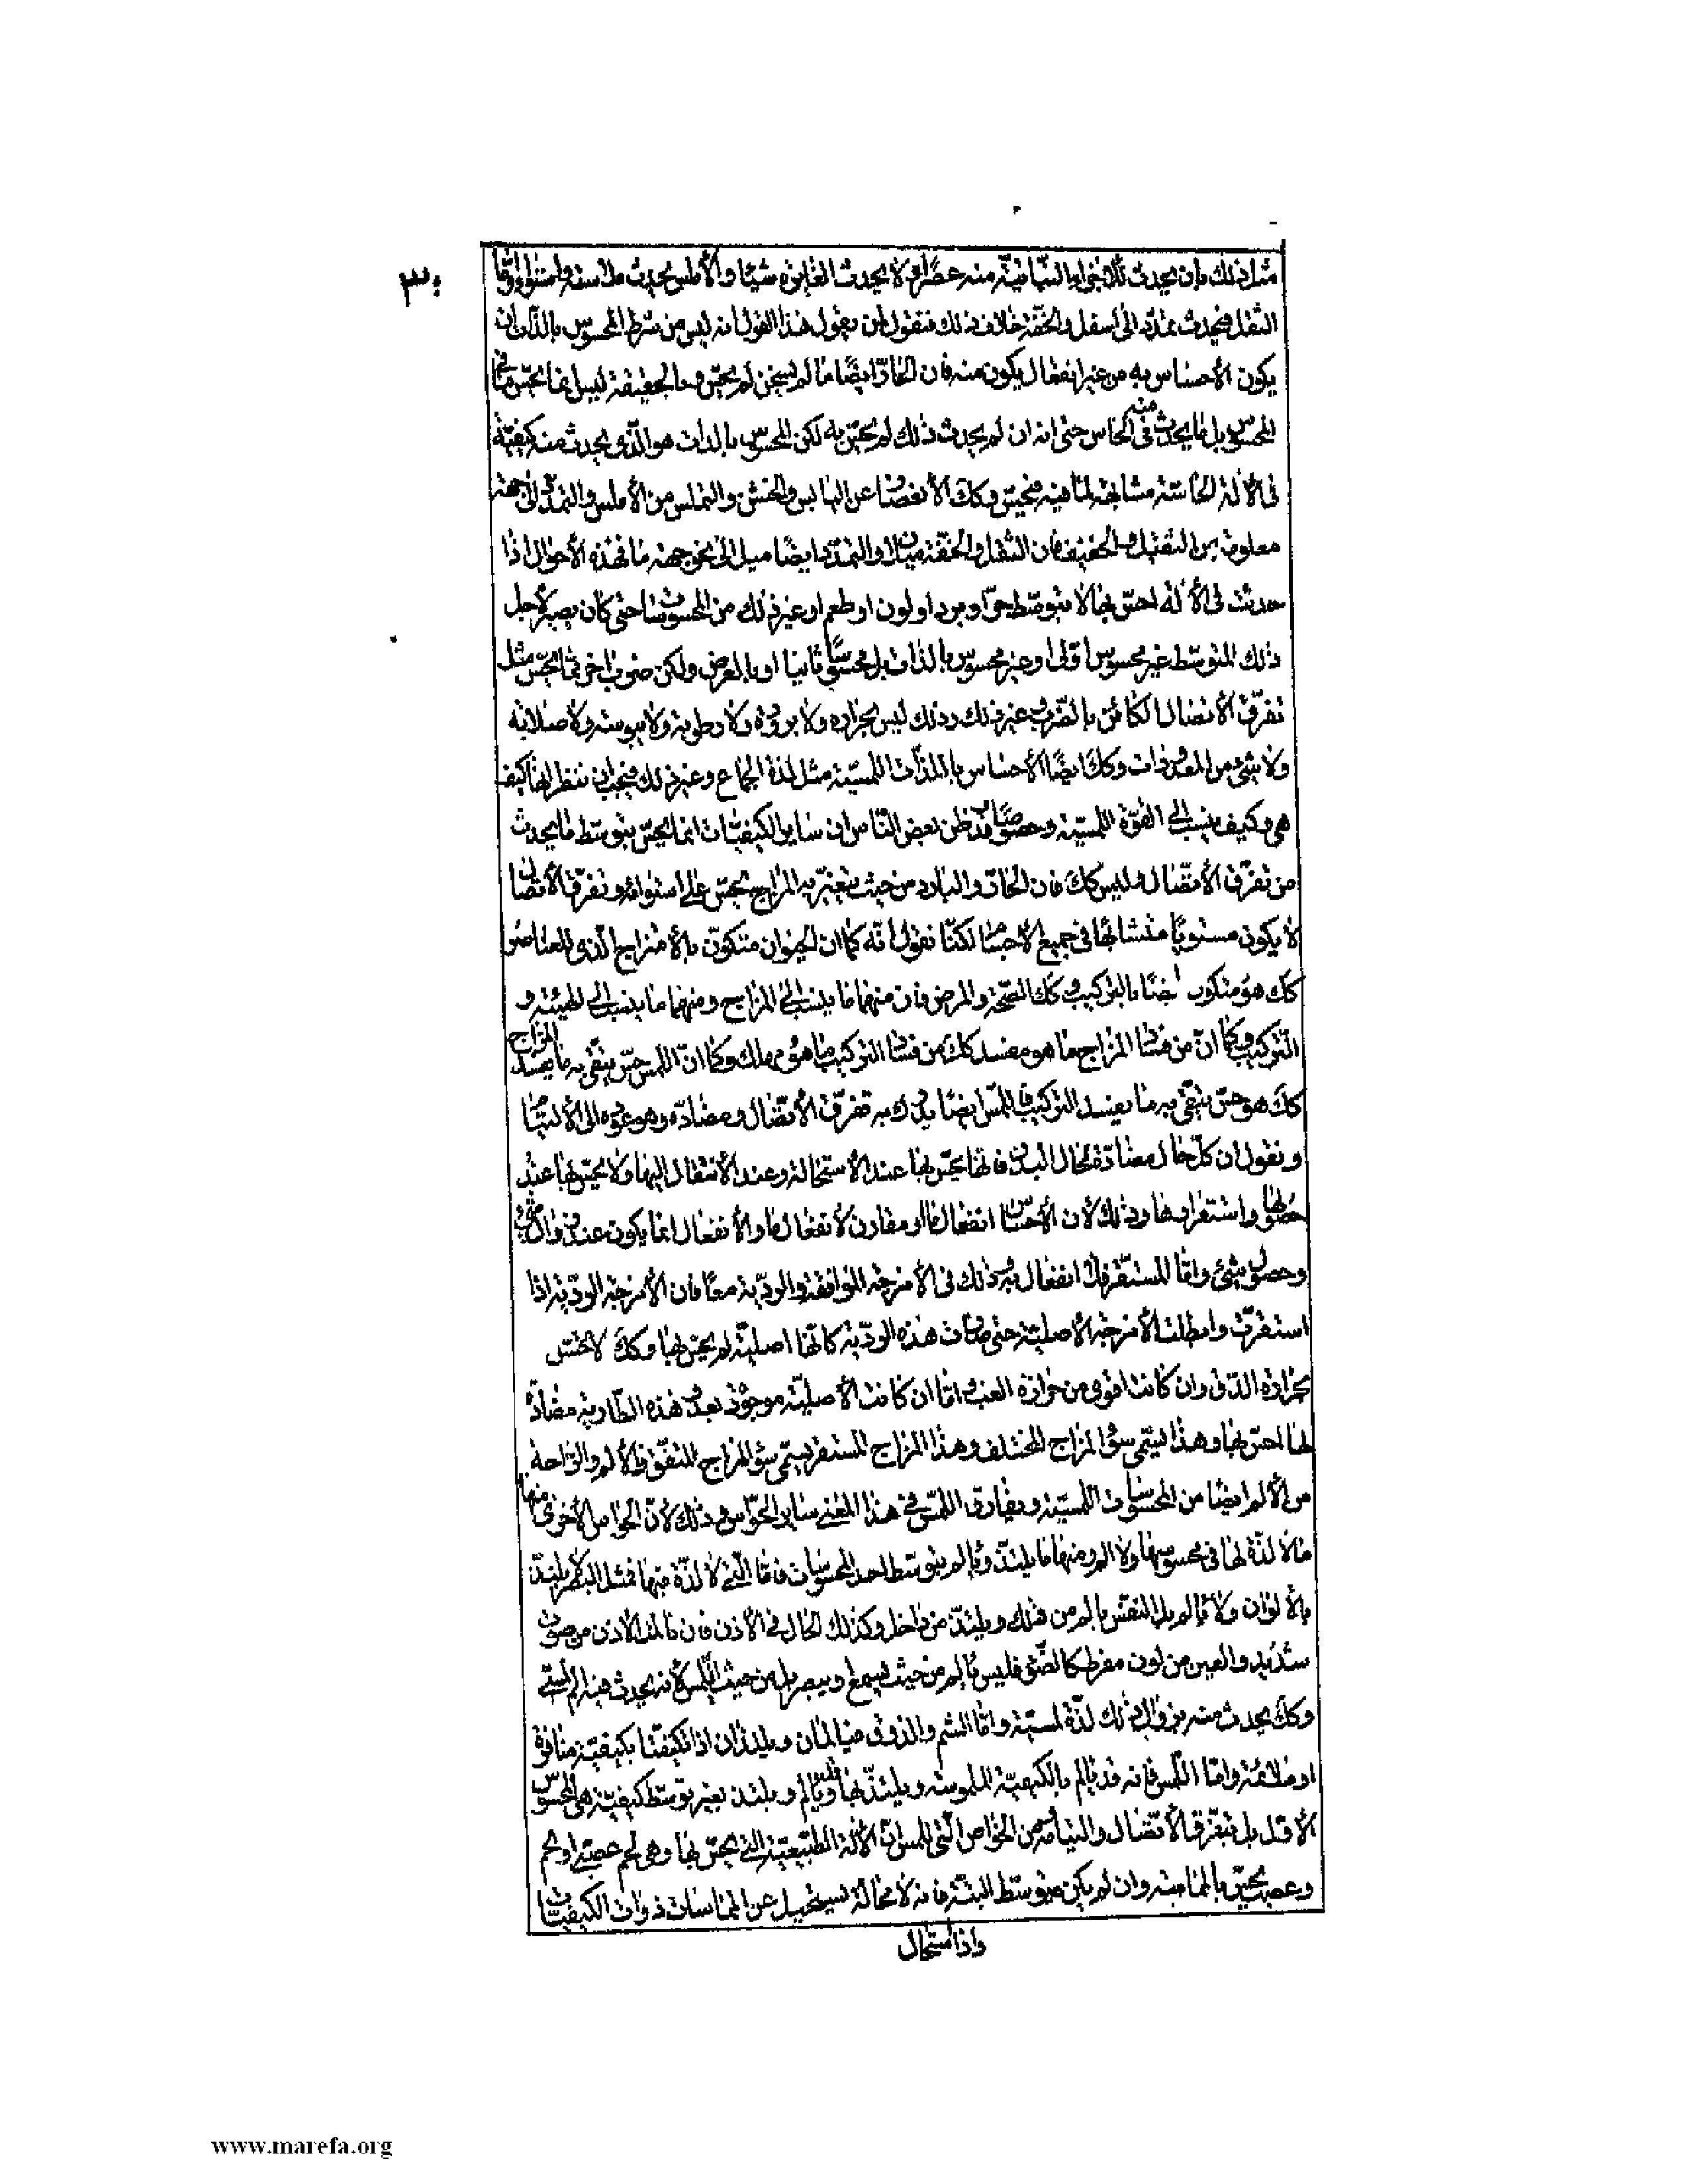 مثل ذلك بان يحدث للاجزاء النباتية منه عصرا ولا يحدث للغايرة شيئا والأملس يحدث ملاسة واستواء واما
الثقل فيحدث تمددا الى اسفل والخفة خلاف ذلك فنقول لمن يقول هذا القول انه ليس من شرط المحسوس بالذات ان
يكون الأحساس به من غير انفعال يكون منه فان الحار ايضا ما لم يسخن لم يحس وبالحقيقة ليس انما يحس ما في
المحسوس بل ما يحدث منه فى الحاس حتى انه ان لم يحدث ذلك لم يحس به لكن المحسوس بالذات هو الذى يحدث منه كيفية
فى الألة الحاسة مشابهة لما فيه فيحس وكك الأنعصار عن اليابس والخشن والتملس من الأملس والتمدد الى جهة
معلومة من الثقيل والخفيف فان الثقل والخفة ميلان والتمدد ايضا ميل الى نحو جهة ما فهذه الأحوال اذا
حدثت فى الألة احس بها لا بتوسط حر او برد او لون او طعم او غير ذلك من المحسوسات حتى كان يصير لأجل
ذلك المتوسط غير محسوس اولى او غير محسوس بالذات بل محسوسا ثانيا او بالعرض ولكن ضرب اخر مما يحس مثل
تفرق الأتصال الكائن بالضرب وغير ذلك وذلك ليس بحرارة ولا برودة ولا رطوبة ولا يبوسة ولا صلابة
ولا شئ من المعدودات وكك ايضا الأحساس باللذات اللمسية مثل لذة الجماع وغير ذلك فيجب ان ننظر انها كيف
هى وكيف ينسب الى القوة اللمسية وخصوصا وقد ظن بعض الناس ان ساير الكيفيات انما يحس بتوسط ما يحدث
من تفرق الأتصال وليس كك فان الحار والبارد من حيث يتغير به المزاج يحس على استوائه وتفرق الأتصال
لا يكون مستويا متشابها فى جميع الأجسام لكنا نقول انه كما ان الحيوان متكون بالأمتزاج الذى للعناصر
كك هو متكون ايضا بالتركيب وكك الصحة والمرض فان منهما ما ينسب الى المزاج ومنهما ما ينسب الى الهيئة و
التركيب وكما ان من فساد المزاج ما هو مفسد كك من فساد التركيب ما هو مهلك وكما ان اللمس حس يتقى به ما يفسد المزاج
كك هو حس يتقى به ما يفسد التركيب فاللمس ايضا يدرك به تفرق الأتصال ومضاده وهو عوده الى الألتيام
ونقول ان كل حال مضادة لحال البدن فانها يحس بها عند الأستحالة وعند الأنتقال اليها ولا يحس بها عند
حصولها واستقرارها وذلك لأن الأحساس انفعال ما او مقارن لأنفعال ما والأنفعال انما يكون عند زوال شئ
وحصول شئ واما المستقر فلا انفعال به وذلك فى الأمزجة الموافقة والردية معا فان الأمزجة الردية اذا
استقرت وابطلت الأمزجة الأصلية حتى صارت هذه الردية كانها اصلية لم يحس بها وكك لا يحس
بحرارة الدق وان كانت اقوى من حرارة الغب واما ان كانت الأصلية موجودة بعد وهذه الطارية مضادة
لها احس بها وهذا يسمى سوء المزاج المختلف وهذا المزاج المستقر يسمى سوء المزاج المتفق والألم والراحة
من الألم ايضا من المحسوسات اللمسية ويفارق اللمس فى هذا المعنى ساير الحواس وذلك لأن الحواس الأخرى منها
ما لا لذة لها فى محسوسها ولا الم ومنها ما يلتذ ويألم بتوسط احد المحسوسات فاما التى لا لذة فيها فمثل البصر لا يلتذ
بالألوان ولا يألم بل النفس يألم من ذلك ويلتذ من داخل وكذلك الحال فى الأذن فان تألمت الأذن من صوت
شديد والعين من لون مفرط كالضوء فليس يألم من حيث يسمع ويبصر بل من حيث يلمس لأنه يحدث فيه الم لمسى
وكك يحدث منه بزوال ذلك لذة لمسية واما الشم والذوق فيألمان ويلتذان اذا تكيفتا بكيفية منافرة
او ملائمة واما اللمس فانه قد يألم بالكيفية الملموسة ويلتذ بها وقد يألم ويلتذ بغير توسط كيفية هى المحسوس
الأول بل بتفرق الأتصال والتيامه ومن الخواص التى للمس ان الألة الطبيعية التى يحس بها وهى لحم عصبى او لحم
وعصب يحس بالمماسة وان لم يكن بتوسط البتة فانه لا محالة يستحيل عن المماسات ذوات الكيفيات
واذا استحال
www.marefa.org